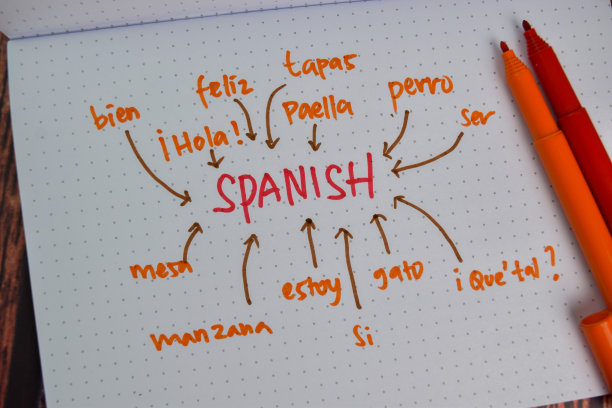 tapas
feliz
perro
bien
Paella
ser
¡Hola!
SPANISH
mesa
gato
¡Que'tal?
estoy
manzana
Si